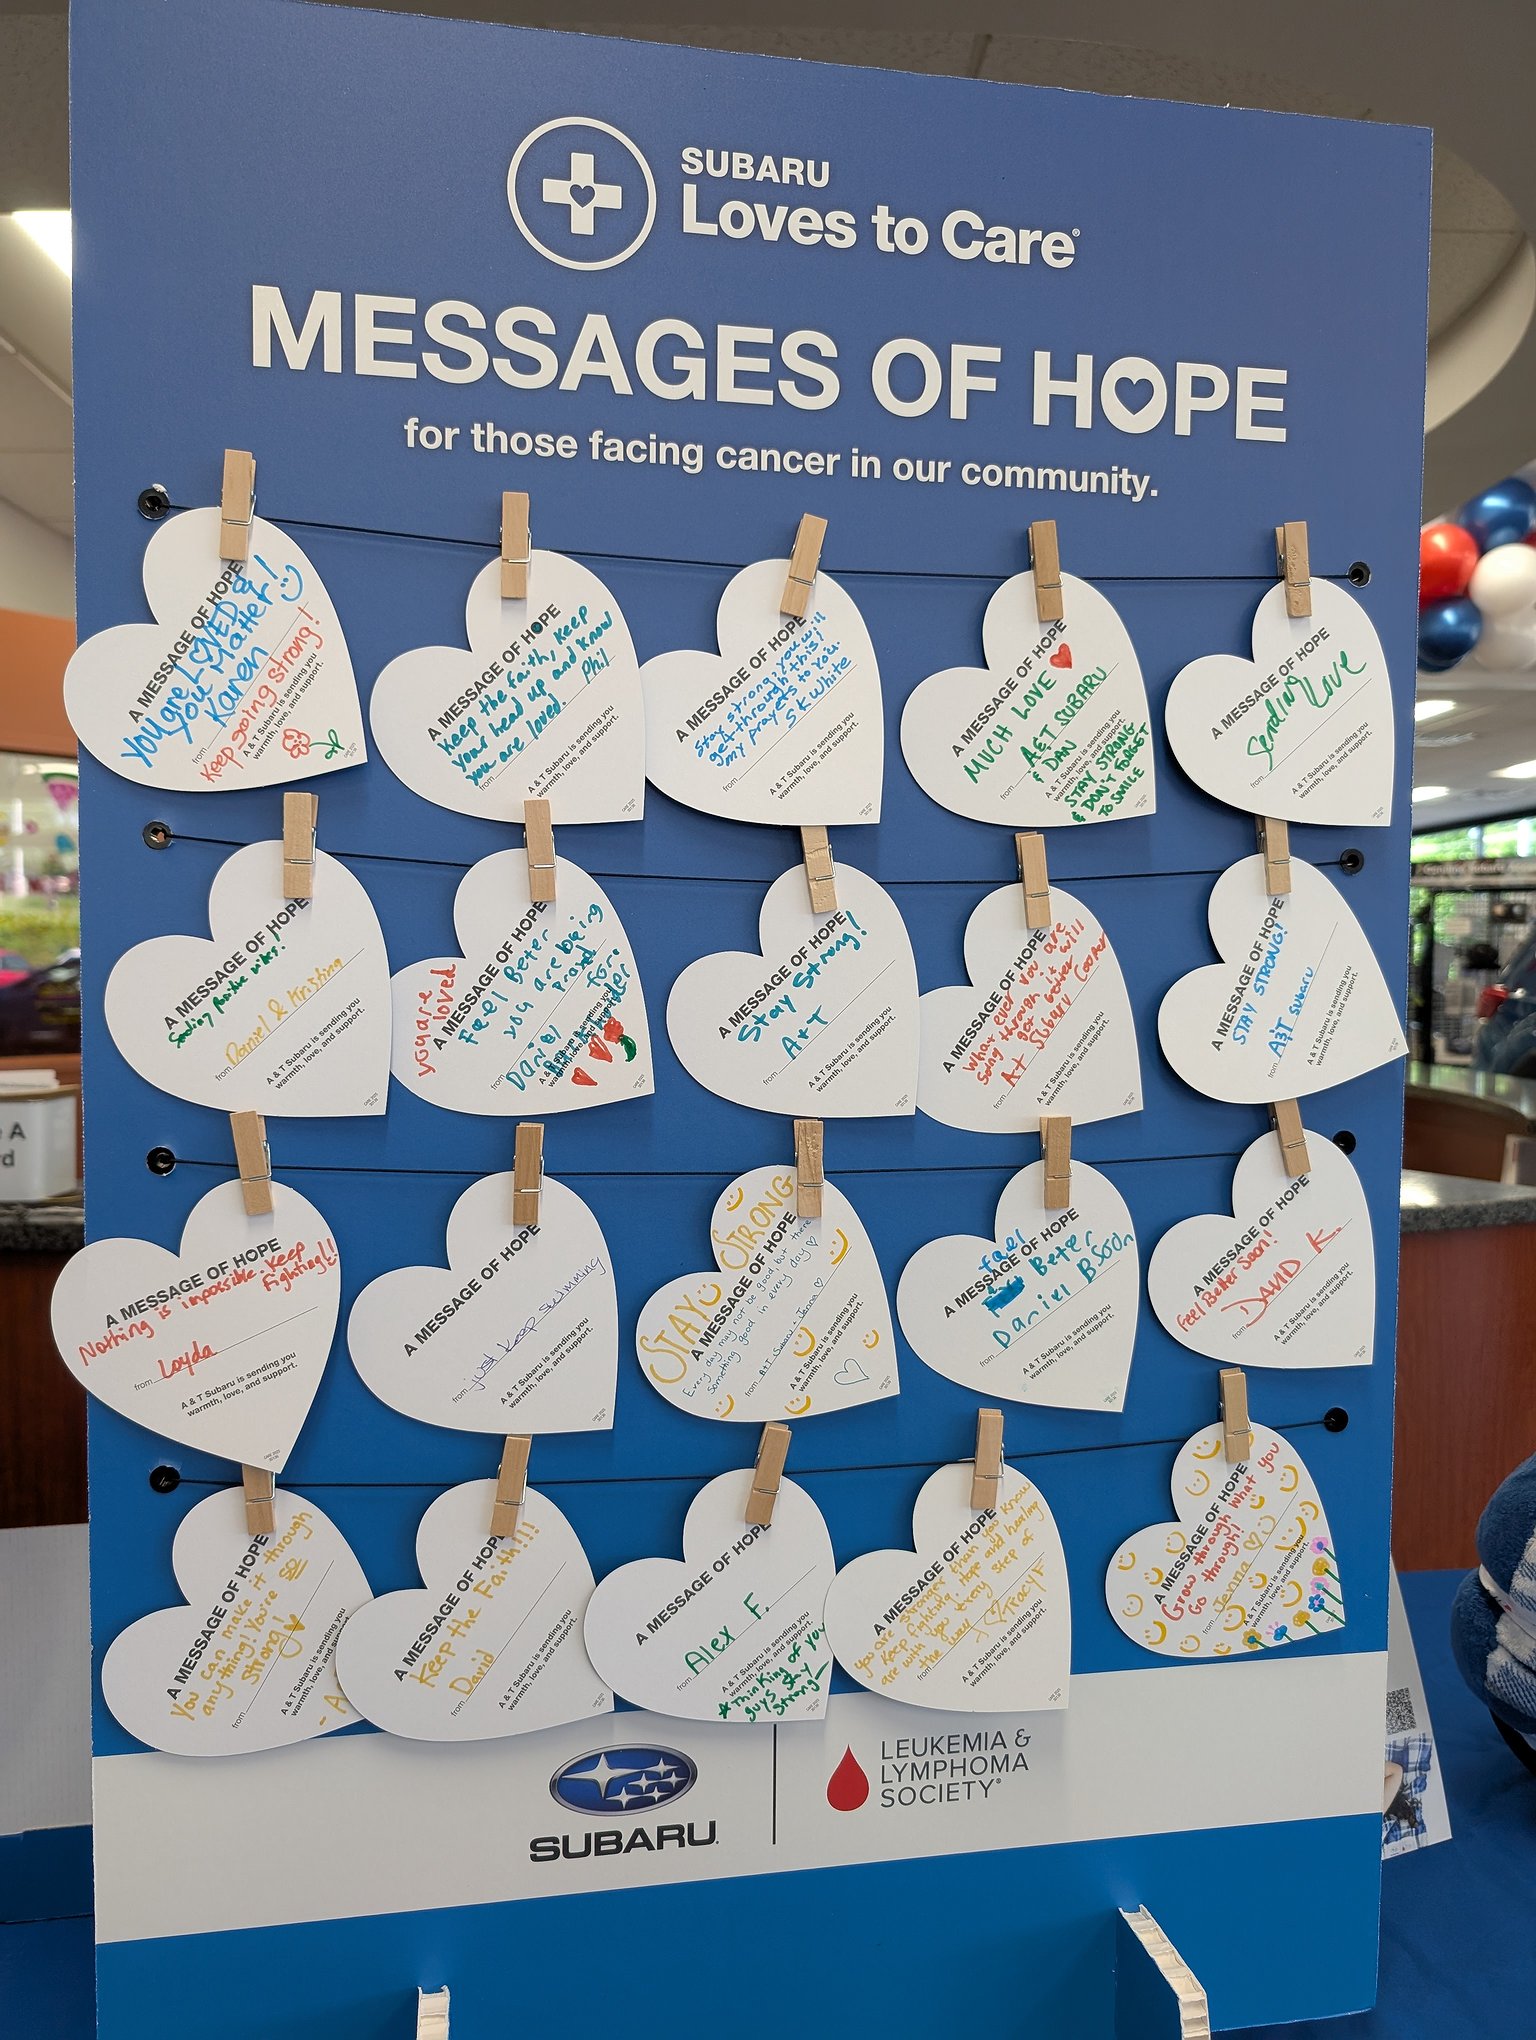 SUBARU
Loves to Care®
MESSAGES OF HOPE
for those facing cancer in our community.
A MESSAGE OF HOPE
You are LOVED &
You Matter!
Karen
from
Keep going strong!
A & T Subaru is sending you
warmth, love, and support.
A MESSAGE OF HOPE
Keep the faith, keep
your head up and know
you are loved. Phil
from
A & T Subaru is sending you
warmth, love, and support.
A MESSAGE OF HOPE
Stay strong; you will
get through this!
my prayers to you.
SK White
from
A & T Subaru is sending you
warmth, love, and support.
A MESSAGE OF HOPE
MUCH LOVE
A&T SUBARU
& DAN
from
A & T Subaru is sending you
warmth, love, and support.
STAY STRONG
& DON'T FORGET
TO SMILE
A MESSAGE OF HOPE
Sending Love
from
A & T Subaru is sending you
warmth, love, and support.
A MESSAGE OF HOPE
Sending Positive vibes!
from Daniel & Kristina
A & T Subaru is sending you
warmth, love, and support.
you are
loved
A MESSAGE OF HOPE
Feel Beter
you are being
Prayed for
from Daniel
A MESSAGE OF HOPE
Stay Strong!
A+T
from
A & T Subaru is sending you
warmth, love, and support.
A MESSAGE OF HOPE
What ever you are
Going through it will
get better
from A+T Subaru Cooper
A & T Subaru is sending you
warmth, love, and support.
A MESSAGE OF HOPE
STAY STRONG!
from A&T Subaru
A & T Subaru is sending you
warmth, love, and support.
A MESSAGE OF HOPE
Nothing is impossible. Keep
Fighting!!
from Loyda
A & T Subaru is sending you
warmth, love, and support.
A MESSAGE OF HOPE
just keep swimming
from
A & T Subaru is sending you
warmth, love, and support.
STAY STRONG
A MESSAGE OF HOPE
Every day may not be good but there
something good in every day
from A+T Subaru - Jenna
A & T Subaru is sending you
warmth, love, and support.
A MESSAGE OF HOPE
feel
Better
Soon
from Daniel B
A & T Subaru is sending you
warmth, love, and support.
A MESSAGE OF HOPE
Feel Better Soon!
from DAVID K.
A & T Subaru is sending you
warmth, love, and support.
A MESSAGE OF HOPE
You can make it through
anything! You're so
strong!
from
A & T Subaru is sending you
warmth, love, and support.
- A
A MESSAGE OF HOPE
Keep the Faith!!!
from David
A & T Subaru is sending you
warmth, love, and support.
A MESSAGE OF HOPE
from Alex F.
A & T Subaru is sending you
warmth, love, and support.
* Thinking of you
guys stay
strong
A MESSAGE OF HOPE
You are stronger than you know
Keep fighting. Hope and healing
are with you every step of
the way
Tracy F
from
A & T Subaru is sending you
warmth, love, and support.
A MESSAGE OF HOPE
Grow through what you
Go through!
from Jenna
A & T Subaru is sending you
warmth, love, and support.
SUBARU
LEUKEMIA &
LYMPHOMA
SOCIETY®